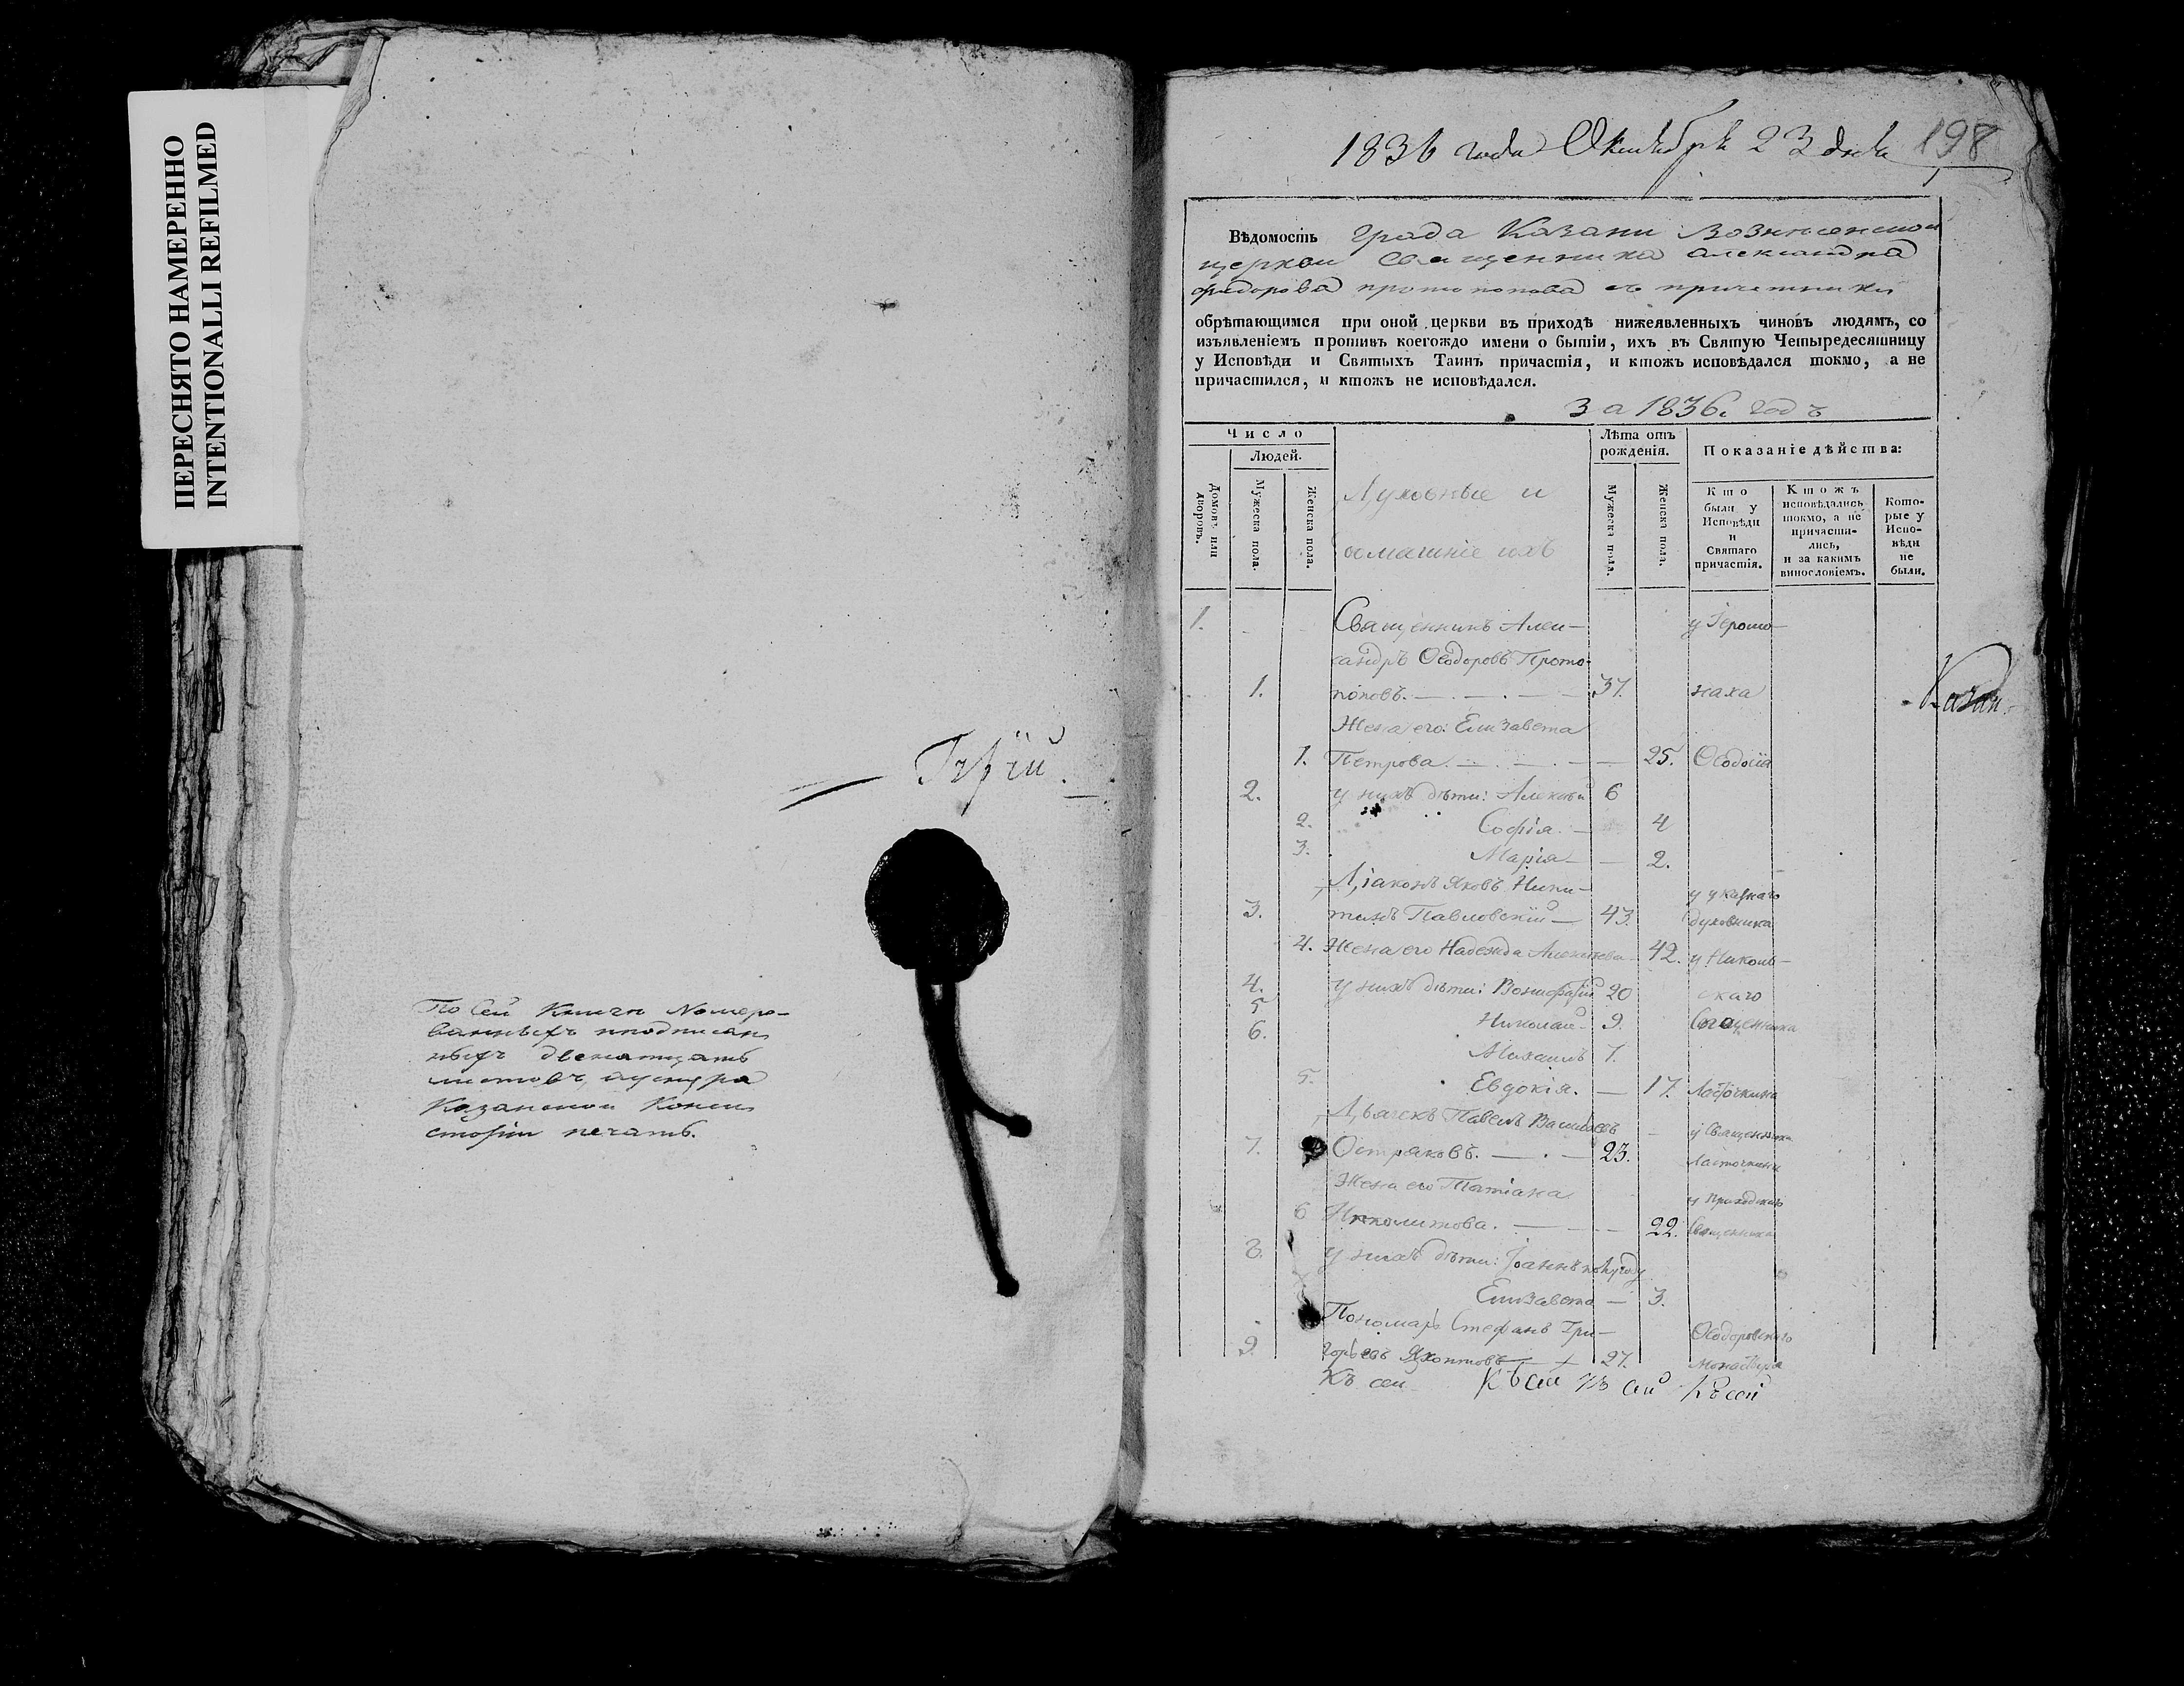 ПЕРЕСНЯТО НАМЕРЕННО
INTENTIONALLI REFILMED
По сей Книгѣ Номеро-
ванныхъ и подписан
ныхъ двенатцать
листовъ, а у снура
Казанской Конси
сторіи печать.
1836 года Октября 23 дня 198
Вѣдомость Града Казани Вознесенской
церкви священника Александра
Федорова Протопопова съ причетники
обрѣтающимся при оной церкви въ приходѣ нижеявленныхъ чиновъ людямъ, со
изъявленіемъ противъ коегождо имени о бытіи, ихъ въ Святую Четыредесятницу
у Исповѣди и Святыхъ Таинъ причастія, и ктожъ исповѣдался токмо, а не
причастился, и ктожъ не исповѣдался.
За 1836. годъ
Число
Людей.
Домовъ или дворовъ.
Мужеска пола.
Женска пола.
Духовные и
домашніе ихъ
Лѣта отъ рожденія.
Мужеска пола.
Женска пола.
Показаніе дѣйства:
Кто были у Исповѣди и Святаго причастія.
Ктожъ исповѣдались токмо, а не причасти-лись, и за какимъ винословіемъ.
Кото-рые у Испо-вѣди не были.
1. Священникъ Алек- у Іеромо-
сандръ Ѳеодоровъ Прото-
1. поповъ. 37. наха
Жена его: Елизавета
1. Петрова. 25. Ѳеодосія
2. у нихъ дѣти: Алексѣй 6
2. Софія. 4
3. Марія 2.
Діаконъ Яковъ Ники- у указнаго
3. тинъ Павловскій 43. духовника
4. Жена его Надежда Алексѣева 42. у Николь-
4. у нихъ дѣти: Вонифатій 20 скаго
5 Николай 9. Священника
6. Михаилъ 7.
5. Евдокія. 17. Ласточкина
Дьячекъ Павелъ Васильевъ у Священника
7. Остряковъ. 23. Ласточкина
Жена его Татіана у Приходскаго
6 Ипполитова. 22. Священника
8. у нихъ дѣти: Іоаннъ
Елизавета 3.
Пономарь Стефанъ Гри- Ѳеодоровскаго
9. горьевъ 27. монастыря
Къ сей Къ сей Къ сей Къ сей
Казан.